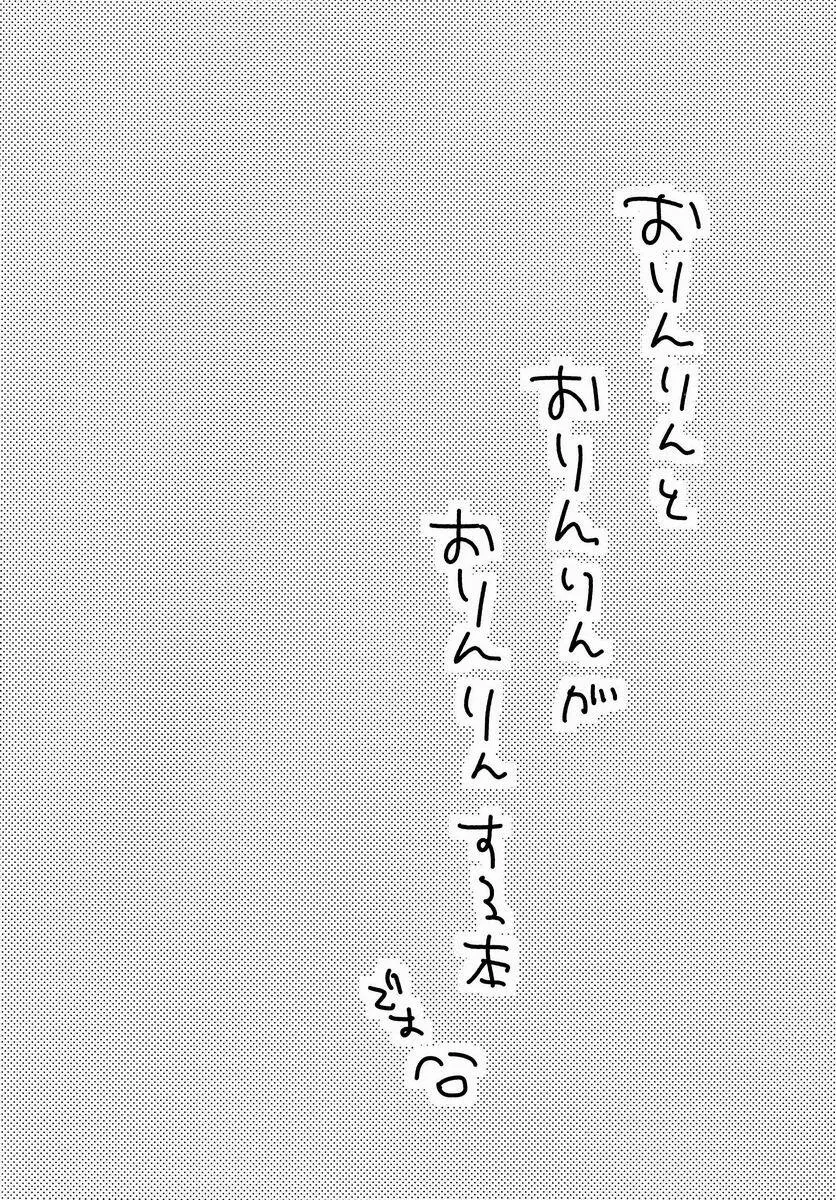 おりんりんと
おりんりんが
おりんりんする本
です